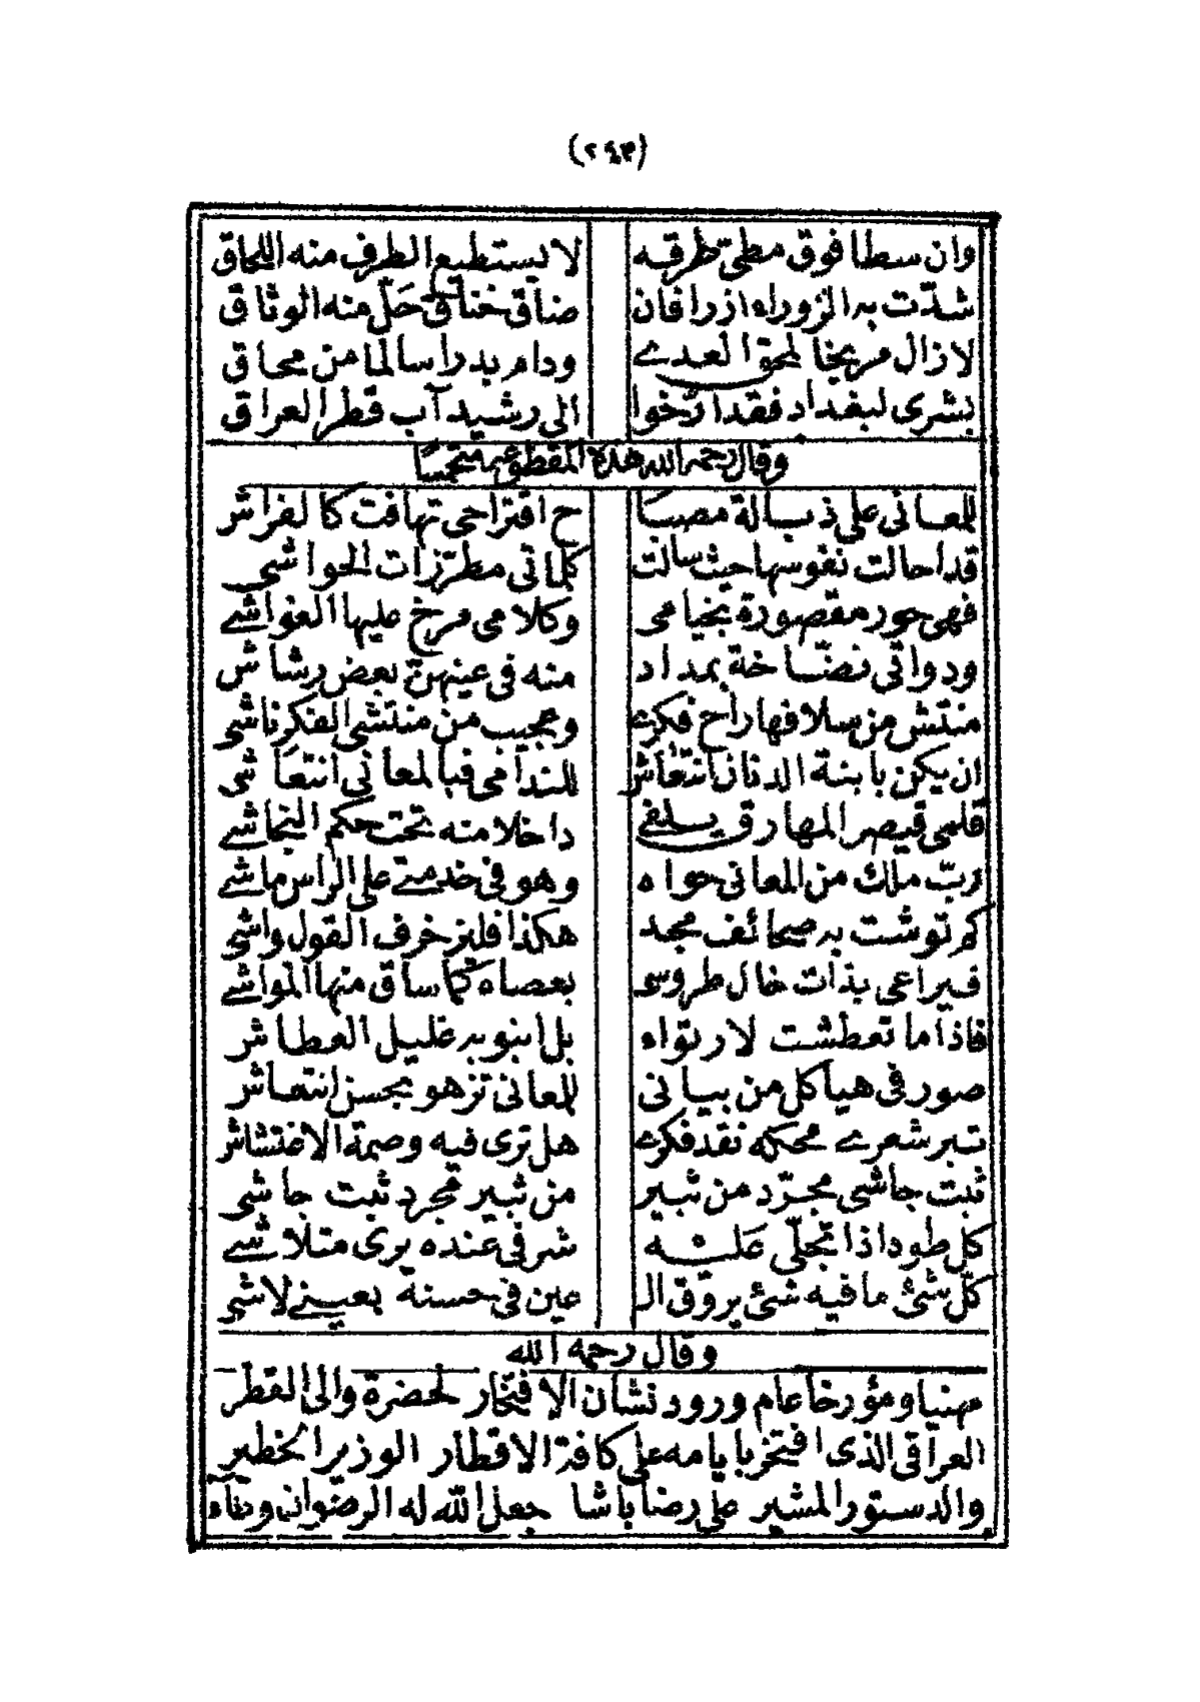 (٢٤٣)
وان سطا فوق مطي طرقه لا يستطيع الطرف منه اللحاق
شدّت به الزوراء ازرا فان ضاق خناق حلّ منه الوثاق
لا زال مريخا لمحق العدى ودام بدرا سالما من محاق
بشرى لبغداد فقد ارّخوا الى رشيد آب قطر العراق
وقال رحمه الله هذه المقطوعه متحمسًا
للمعانى على ذبالة مصبا ح اقتراحى تهافت كالفراش
قد احالت نفوسها حيث سالت كلماتى مطرّزات الحواشى
فهى حور مقصورة بخيامى وكلامى مرخ عليها الغواشى
ودواتى نضّاخة بمداد منه فى عينهن بعض رشاش
منتش من سلافها راح فكرى وعجيب من منتشى الفكر ناشى
ان يكن بابنة الدنان انتعاش للندامى فبالمعانى انتعاشى
قلمى قيصر المهارق يلفى داخلا منه تحت حكم النجاشى
ربّ ملك من المعانى حواه وهو فى خدمتى على الراس ماشى
كم توشت به صحائف مجد هكذا فليزخرف القول واشى
فيراعى بذات خال طروسى بعصاه كما ساق منها المواشى
فاذا ما تعطشت لارتواء بل انبوبه غليل العطاش
صور فى هياكل من بيانى للمعانى تزهو بحسن انتعاش
تبر شعرى محكه نقد فكرى هل ترى فيه وصمة الاغتشاش
ثبت جاشى مجرّد من ثبير من ثبير مجرد ثبت جاشى
كل طود اذا تجلّى عليه شرفى عنده يرى متلاشى
كلّ شئ ما فيه شئ يروّق الـ عين فى حسنه بعينى لاشى
وقال رحمه الله
مهنيا ومؤرخا عام ورود نشان الافتخار لحضرة والى القطر
العراقى الذى افتخر بايامه على كافة الاقطار الوزير الخطير
والدستور المشير على رضا باشا جعل الله له الرضوان وقاء